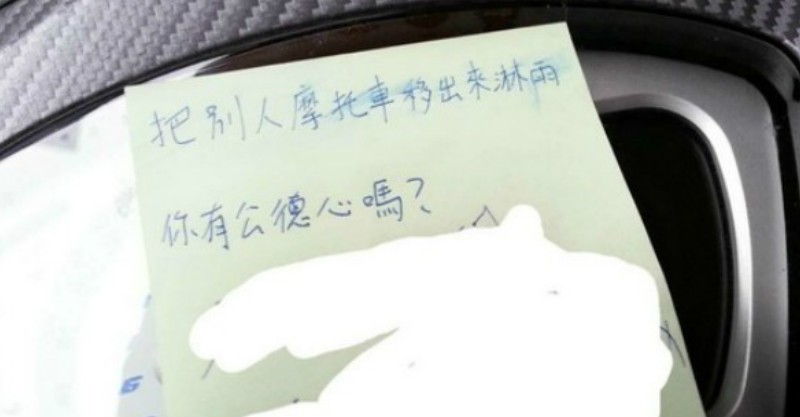 把別人摩托車移出來淋雨
你有公德心嗎?